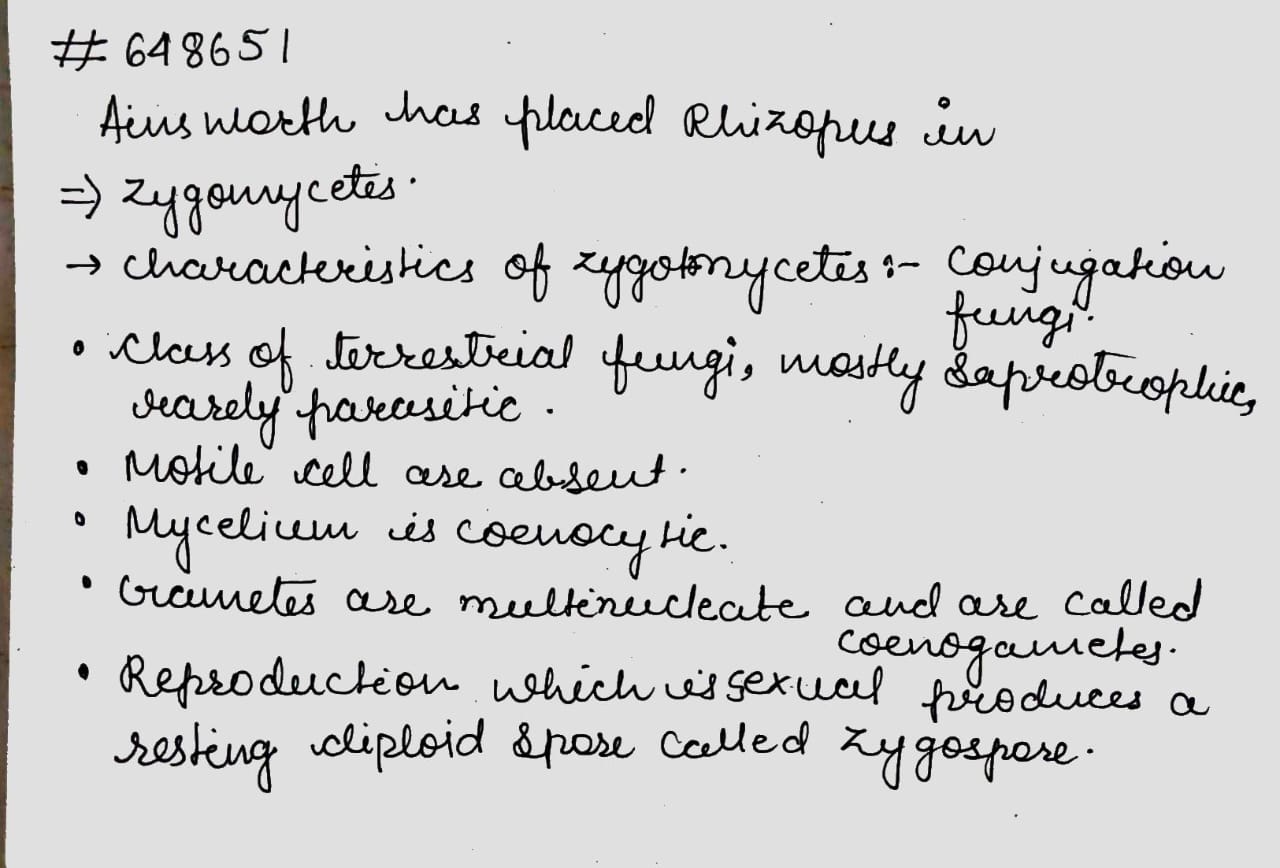 # 648651
Ainsworth has placed Rhizopus in
=> Zygomycetes.
→ Characteristics of zygotomycetes :- Conjugation
fungi.
• Class of terrestrial fungi, mostly Saprotrophic,
rarely parasitic.
• Motile cell are absent.
• Mycelium is coenocytic.
• Grametes are multinucleate and are called
coenogametes.
• Reproduction which is sexual produces a
resting diploid Spore called zygospore.